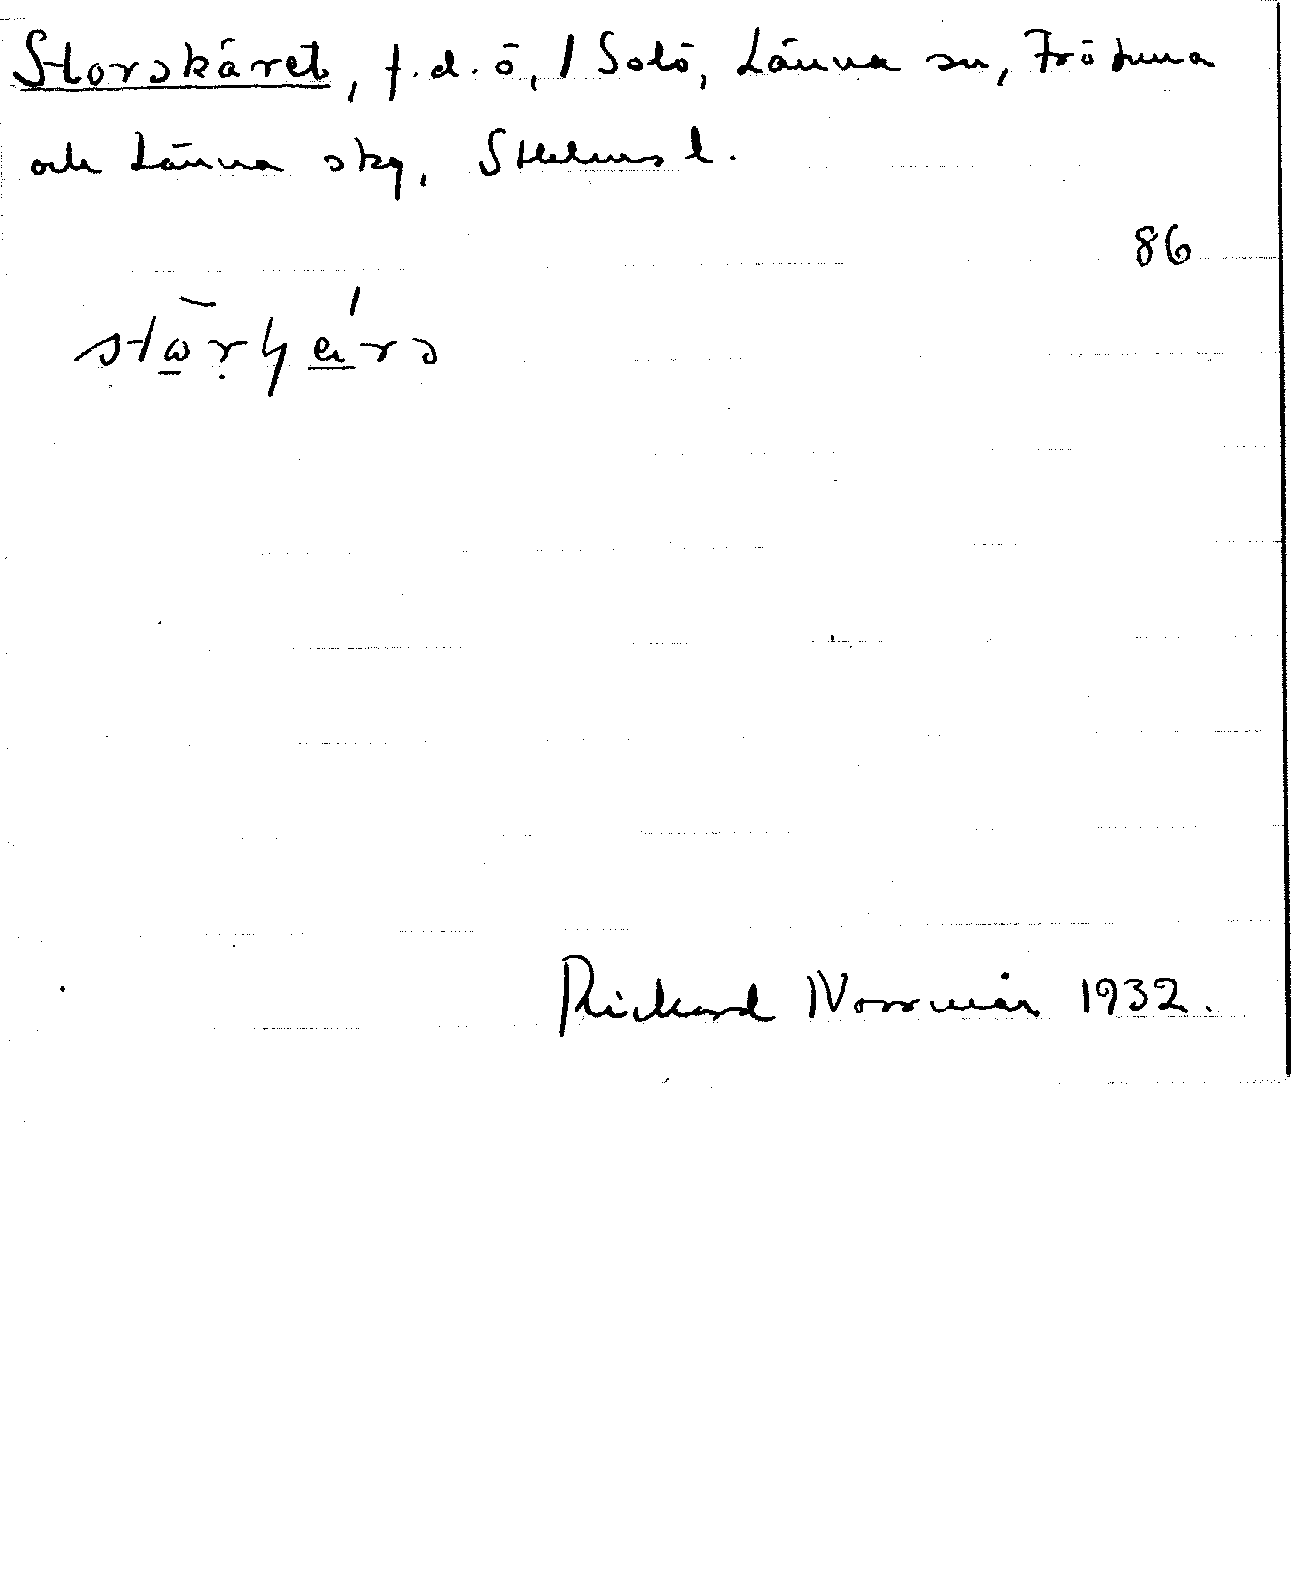 Storskäret, f.d. ö, / Solö, Länna sn, Frötuna
och Länna skg, Sthlms l.
86
Rickard Norrmän 1932.